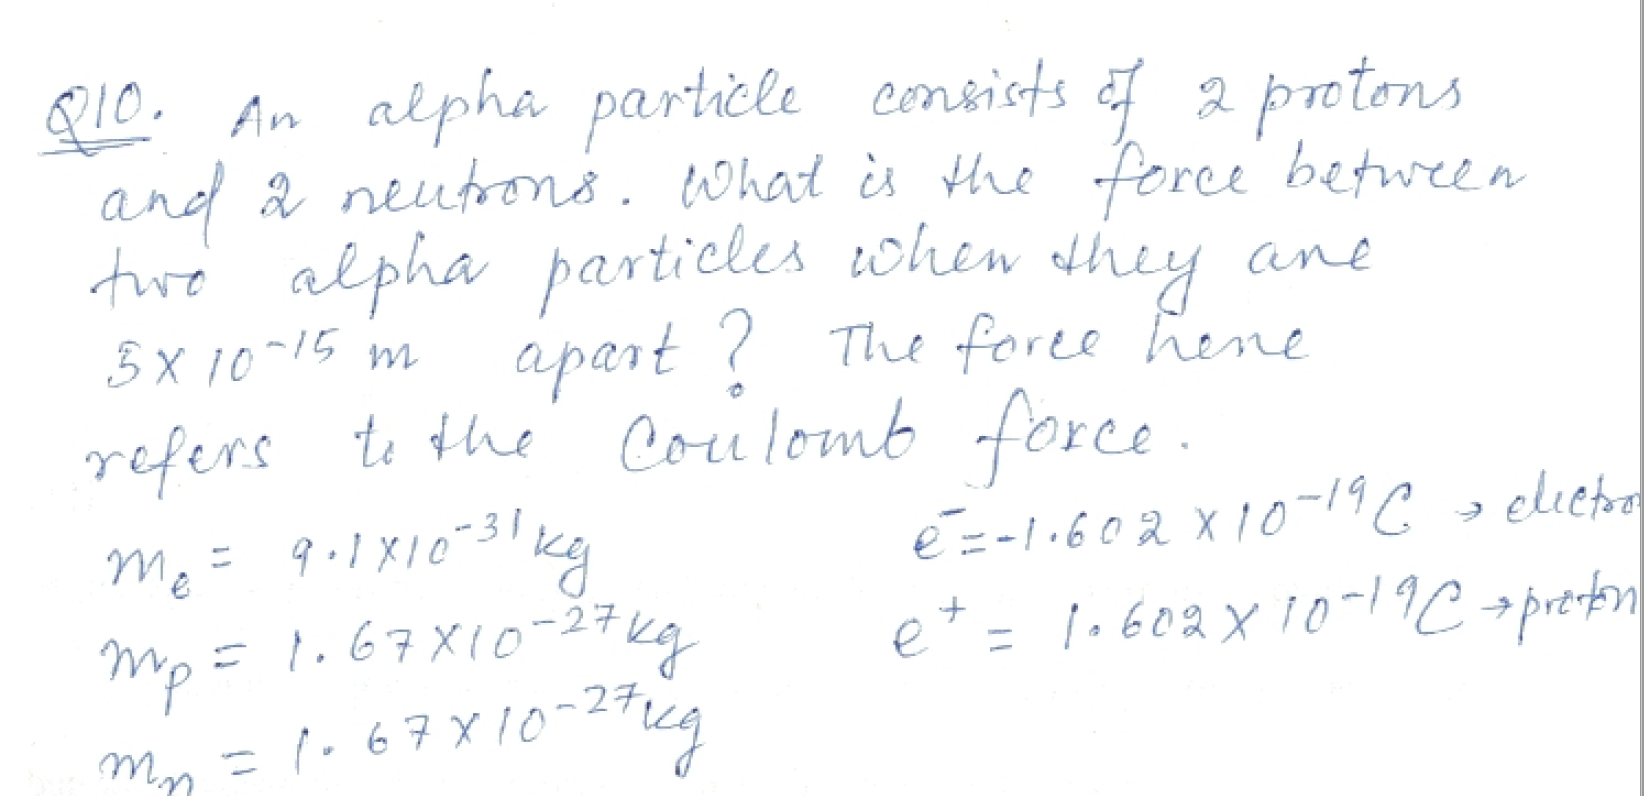 Q10. An alpha particle consists of 2 protons
and 2 neutrons. What is the force between
two alpha particles when they are
5×10⁻¹⁵ m apart? The force here
refers to the Coulomb force.
mₑ = 9.1×10⁻³¹ kg
e⁻ = -1.602×10⁻¹⁹ C → electro
mₚ = 1.67×10⁻²⁷ kg
e⁺ = 1.602×10⁻¹⁹ C → proton
mₙ = 1.67×10⁻²⁷ kg